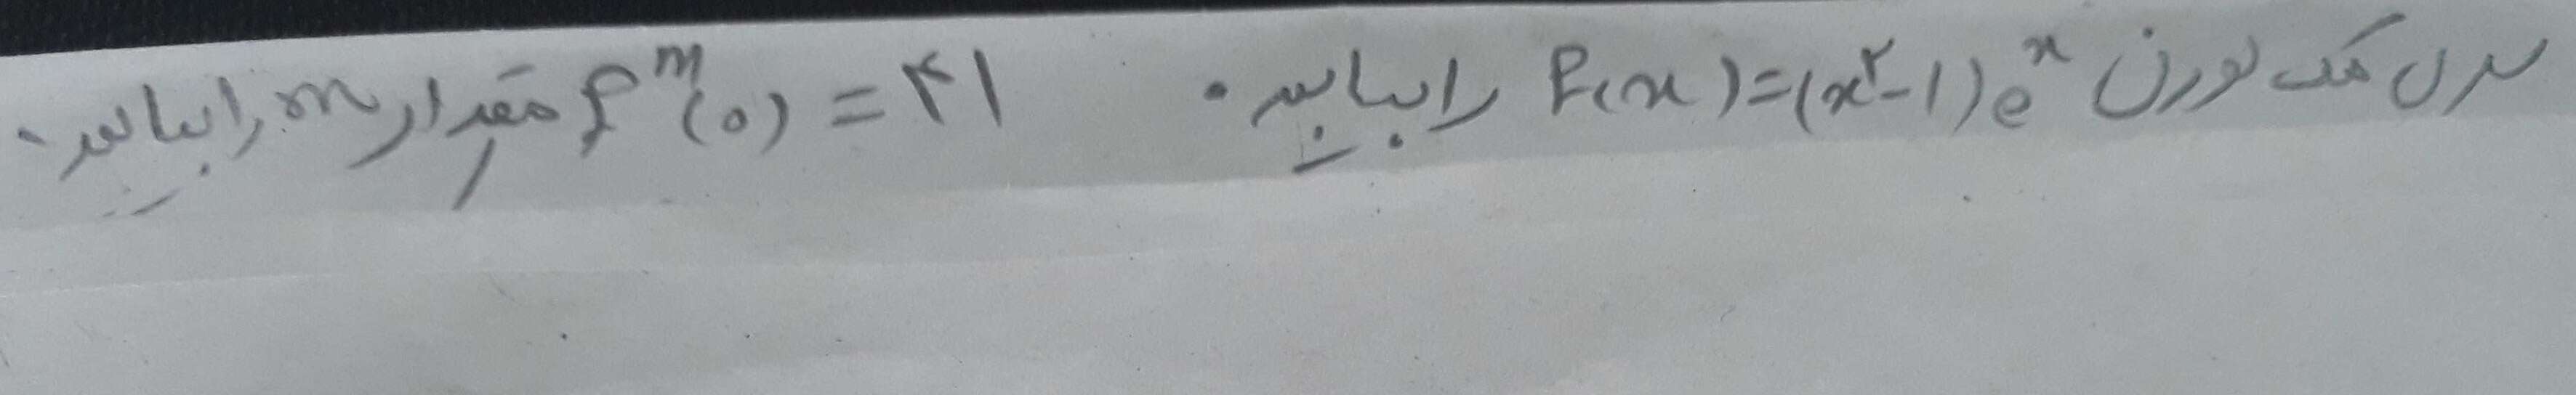 سری مک لورن f(x)=(x²-1)e^x را بیابید. f^m(0)=۴۱ مقدار m را بیابید.